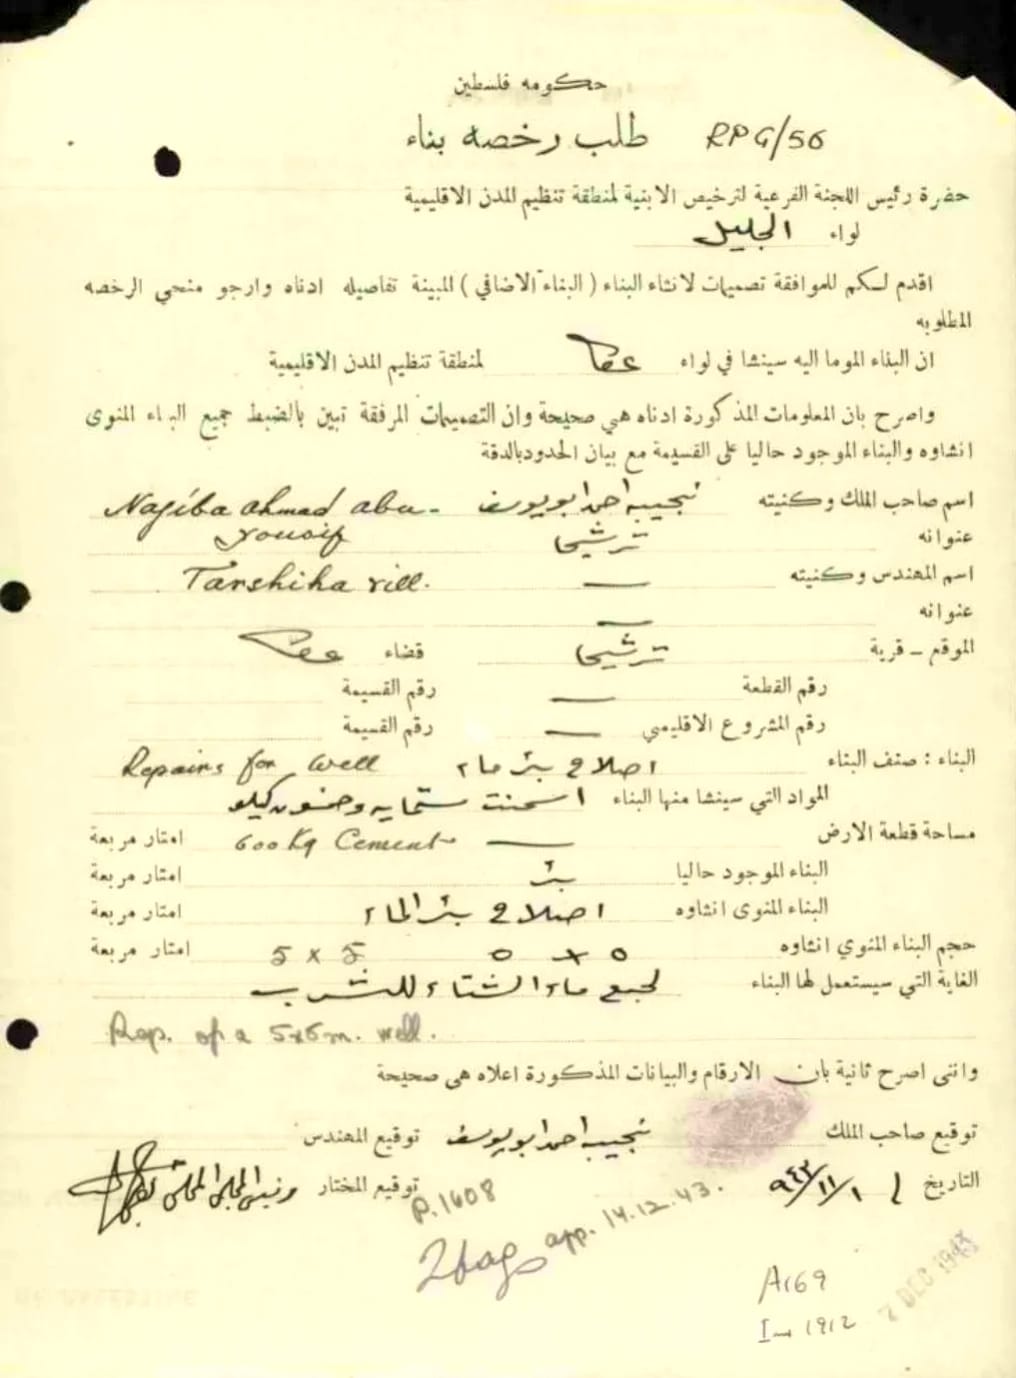 حكومه فلسطين
طلب رخصه بناء RPG/56
حضرة رئيس اللجنة الفرعية لترخيص الابنية لمنطقة تنظيم المدن الاقليمية
لواء الجليل
اقدم لكم للموافقة تصميمات لانشاء البناء ( البناء الاضافي ) المبينة تفاصيله ادناه وارجو منحي الرخصه
المطلوبه
ان البناء الموما اليه سينشا في لواء عكا لمنطقة تنظيم المدن الاقليمية
واصرح بان المعلومات المذكورة ادناه هي صحيحة وان التصميمات المرفقة تبين بالضبط جميع البناء المنوى
انشاوه والبناء الموجود حاليا على القسيمة مع بيان الحدود بالدقة
اسم صاحب الملك وكنيته نجيبه احمد ابو يوسف Najiba ahmad abu-
عنوانه ترشيحا yousif
اسم المهندس وكنيته — Tarshiha vill.
عنوانه —
الموقع - قرية ترشيحا قضاء عكا
رقم القطعة — رقم القسيمة
رقم المشروع الاقليمي — رقم القسيمة
البناء : صنف البناء اصلاح بئر ماء Repairs for well
المواد التي سينشا منها البناء اسمنت ستمايه وخمسون كيلو
مساحة قطعة الارض — 600 Kg Cement امتار مربعة
البناء الموجود حاليا بئر امتار مربعة
البناء المنوى انشاوه اصلاح بئر الماء امتار مربعة
حجم البناء المنوي انشاوه ٥ × ٥ 5 x 5 امتار مربعة
الغاية التي سيستعمل لها البناء لجمع ماء الشتاء للشرب
Rep. of a 5x5m. well.
وانني اصرح ثانية بان الارقام والبيانات المذكورة اعلاه هي صحيحة
توقيع صاحب الملك نجيبه احمد ابو يوسف توقيع المهندس
التاريخ ١/١١/٩٤٣ توقيع المختار رئيس المجلس المحلي
P.1608
2 bags app. 14.12.43.
A169
1912
7 DEC 1943